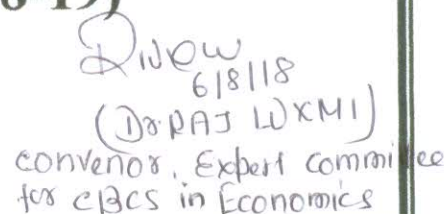 6/8/18
(Dr RAJ LUXMI)
convenor, Expert commitee
for CBCS in Economics